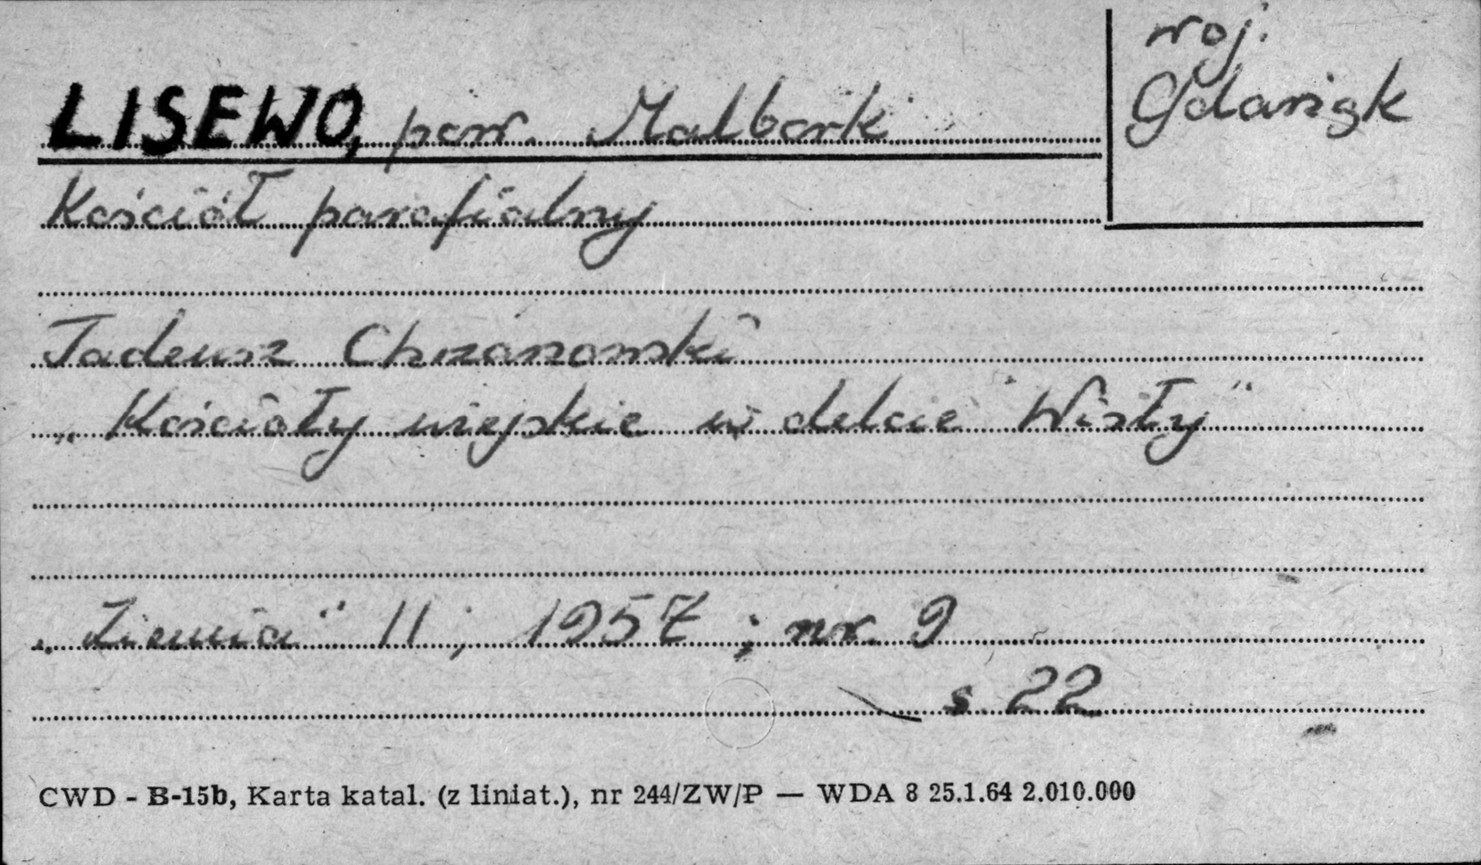 woj.
Gdańsk
LISEWO, pow. Malbork
Kościół parafialny
Tadeusz Chrzanowski
„Kościoły wiejskie w delcie Wisły"
„Ziemia" II; 1957; nr. 9
s 22
CWD - B-15b, Karta katal. (z liniat.), nr 244/ZW/P — WDA 8 25.1.64 2.010.000